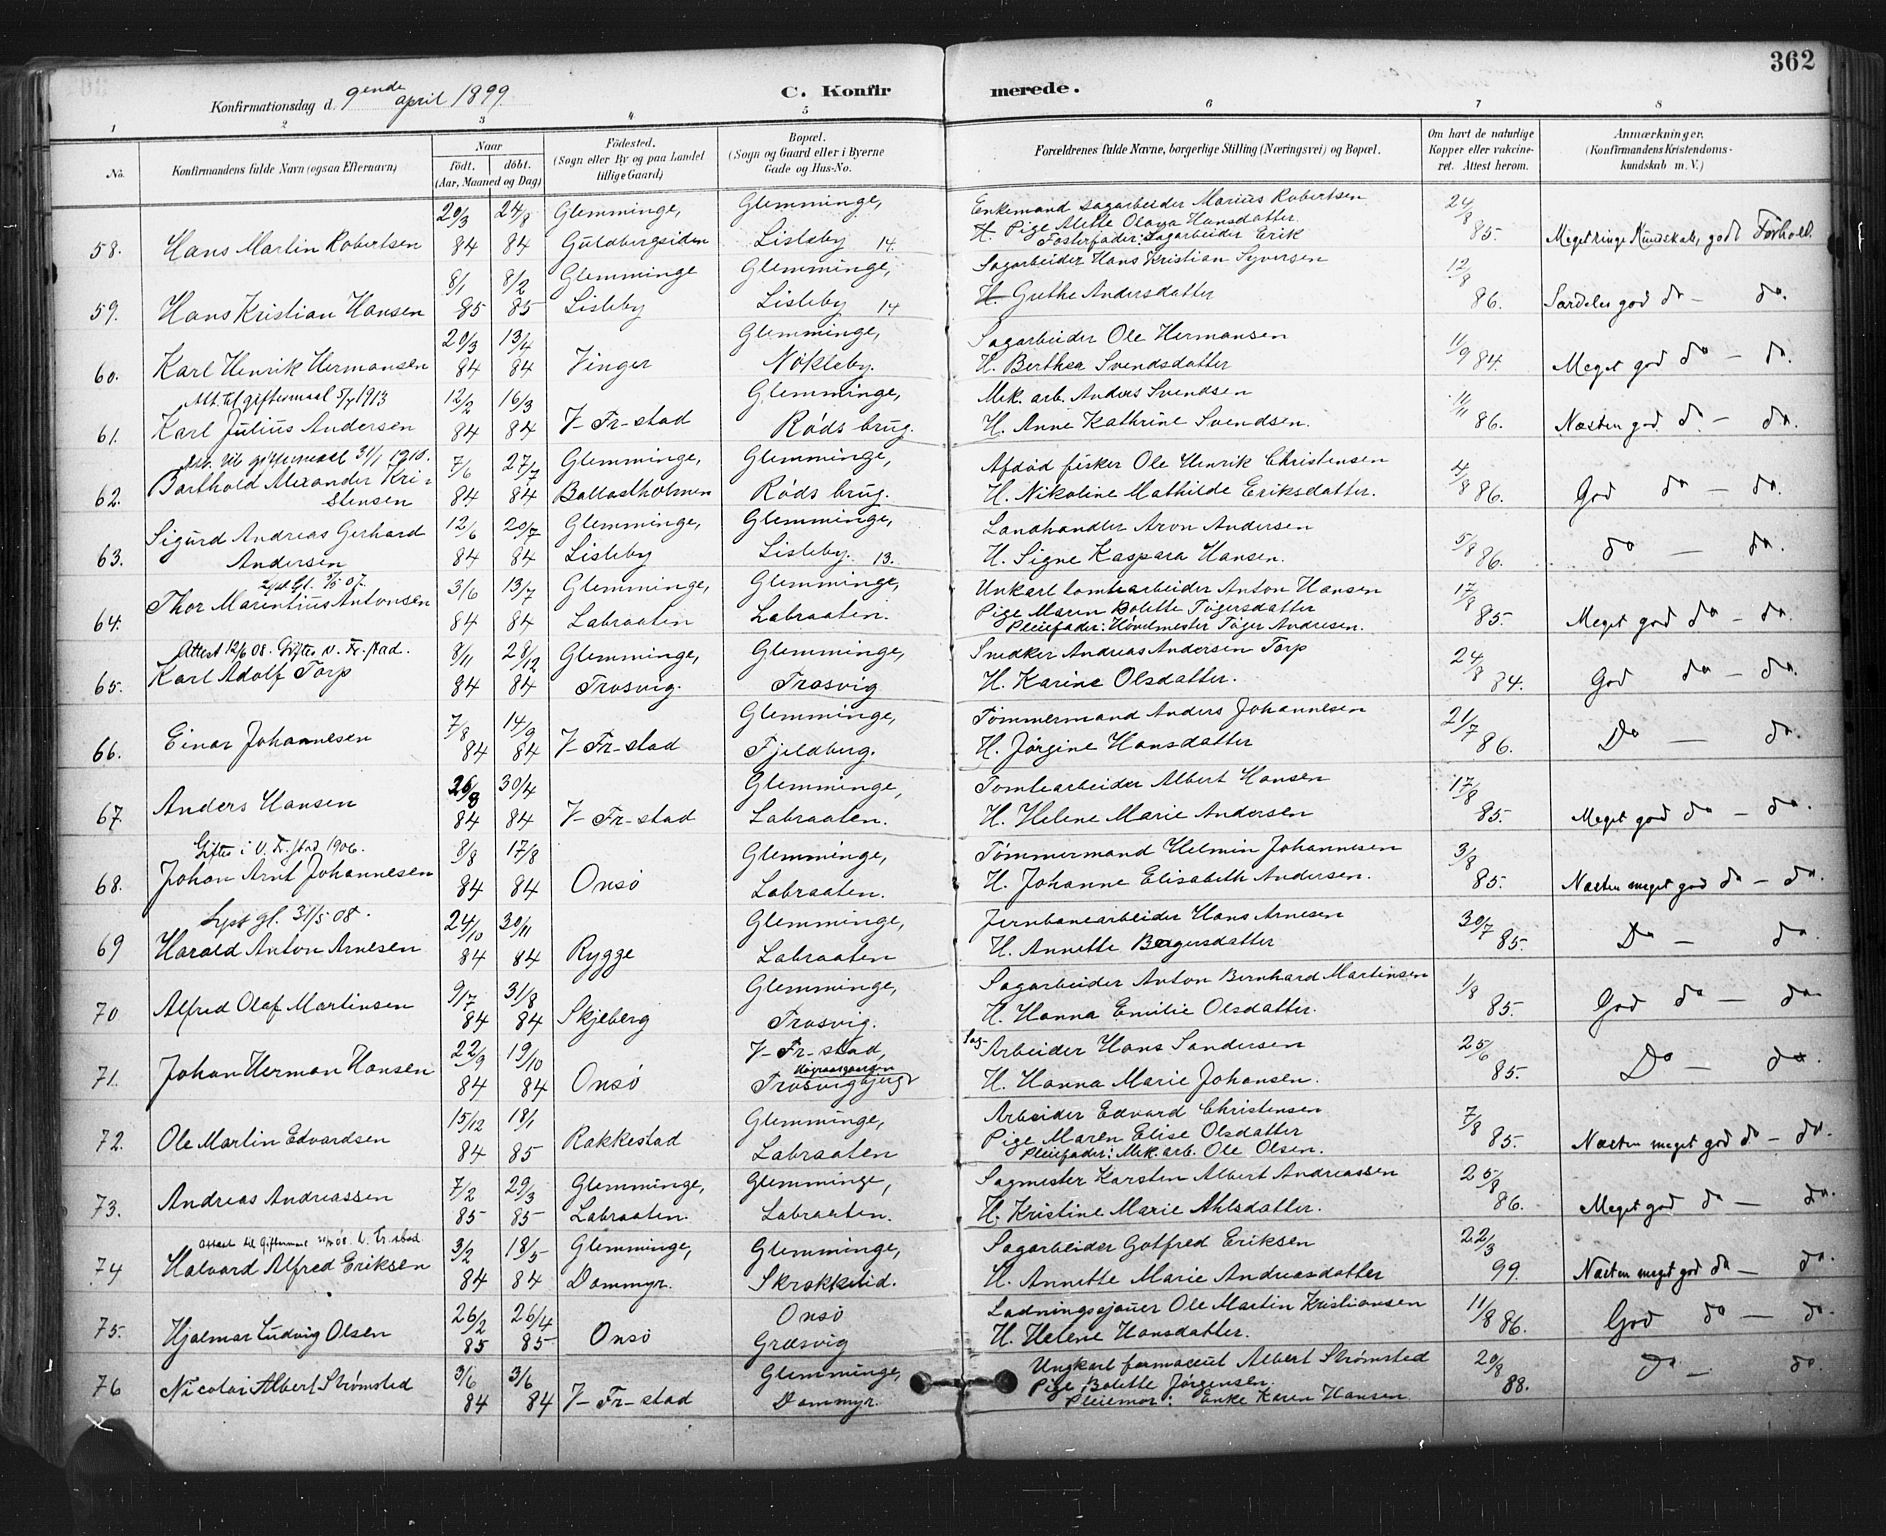 362
Konfirmationsdag d. 9ende april 1899
C. Konfirmerede.
1 2 3 4 5 6 7 8
No. Konfirmandens fulde Navn (ogsaa Efternavn) Naar født. døbt. (Aar, Maaned og Dag) Fødested. (Sogn eller By og paa Landet tillige Gaard) Bopæl. (Sogn og Gaard eller i Byerne Gade og Hus-No. Forældrenes fulde Navne, borgerlige Stilling (Næringsvei) og Bopæl. Om havt de naturlige Kopper eller vakcineret. Attest herom. Anmærkninger. (Konfirmandens Kristendomskundskab m. V.)
20/3 24/8 Glemminge, Glemminge, Enkemand Sagarbeider Marius Robertsen 24/8
H. Pige Mette Olava Hansdatter
58. Hans Martin Robertsen 84 84 Guldbergsiden Lisleby 14. Fosterfader: Sagarbeider Erik 85. Meget ringe Kundskab, godt Forhold.
8/1 8/2 Glemminge Glemminge, Sagarbeider Hans Kristian Syversen 12/8
59. Hans Kristian Hansen 85 85 Lisleby Lisleby 14 H. Grethe Andersdatter 86. Særdeles god do — do.
20/3 13/4 Glemminge, Sagarbeider Ole Hermansen 11/9
60. Karl Henrik Hermansen 84 84 Vinger Nökleby. H. Berthea Svendsdatter 84. Meget god do — do.
Att. til giftermaal 5/7 1913 12/2 16/3 Glemminge, Mek. arb. Anders Svendsen
61. Karl Julius Andersen 84 84 V-Fr-stad Røds brug. H. Anne Kathrine Svendsen. 86. Næsten god do — do.
Att. til giftermaal 31/1 1910. 7/6 27/7 Glemminge, Glemminge, Afdød fisker Ole Henrik Christensen 4/8
62. Barthold Alexander Kristensen 84 84 Ballastholmen Røds brug. H. Nikoline Mathilde Eriksdatter. 86. God do — do.
Sigurd Andreas Gerhard 12/6 20/7 Glemminge, Glemminge, Landhandler Aron Andersen 5/8
63. Andersen 84 84 Lisleby Lisleby. 13. H. Signe Kaspara Hansen. 86. do — do.
Lyst Gl. 07. 3/6 13/7 Glemminge, Glemminge, Unkarl tomtearbeider Anton Hansen 17/8
Thor Marentius Antonsen Pige Maren Bolette Tögersdatter
64. 84 84 Labraaten Labraaten. Pleiefader: Høvelmester Töger Andresen. 85. Meget god do — do.
Attest 12/6 08. Giftes V. Fr.stad. 8/11 28/12 Glemminge, Glemminge, Snedker Andreas Andersen Torp 24/8
65. Karl Adolf Torp 84 84 Trosvig. Trosvig H. Karine Olsdatter. 84. God do — do.
7/8 14/9 Glemminge, Tömmermand Anders Johannesen 21/7
66. Einar Johannesen 84 84 V-Fr-stad Fjeldberg. H. Jørgine Hansdatter 86. Do — do.
26/8 30/4 Glemminge, Tomtearbeider Albert Hansen 17/8
67. Anders Hansen 84 84 V-Fr-stad Labraaten. H. Helene Marie Andersen 85. Meget god do — do.
Giftes i V. Fr.stad 1906. 8/8 17/8 Glemminge, Tømmermand Helmin Johannesen 3/8
68. Johan Arnt Johannesen 84 84 Onsö Labraaten. H. Johanne Elisabeth Andersen. 85. Næsten meget god do — do.
Lyst gl. 31/5 08. 24/10 30/11 Glemminge, Jernbanearbeider Hans Arnesen 30/7
69 Harald Anton Arnesen 84 84 Rygge Labraaten H. Annette Bøgersdatter 85. Do — do
9/7 31/8 Glemminge, Sagarbeider Anton Bernhard Martinsen 1/8
70 Alfred Olaf Martinsen 84 84 Skjeberg Trosvig. H. Hanna Emilie Olsdatter. 85. God do — do
22/9 19/10 V-Fr-stad, Sag-Arbeider Hans Sandersen 25/6
71. Johan Herman Hansen 84 84 Onsö Trosvigbjerg H. Hanna Marie Johansen. 85. Do — do
15/12 18/1 Glemminge, Arbeider Edvard Christensen 7/8
72. Ole Martin Edvardsen 84 85 Rakkestad Labraaten Pige Maren Elise Olsdatter 85. Næsten meget god do — do.
Pleiefader: Mek. arb. Ole Olsen.
7/2 29/3 Glemminge, Glemminge, Sagmester Karsten Albert Andreassen 25/8
73. Andreas Andreassen 85 85 Labraaten. Labraaten. H. Kristine Marie Ahlsdatter. 86. Meget god do — do.
Attest til Giftermaal 08. V. Fr.stad 3/2 18/5 Glemminge, Glemminge, Sagarbeider Gotfred Eriksen 22/3
74 Halvard Alfred Eriksen 84 84 Dammyr. Skrokkelid. H. Annette Marie Andreasdatter 99. Næsten meget god do — do.
26/2 26/4 Onsö Ladningssjouer Ole Martin Kristiansen 11/8
75. Hjalmar Ludvig Olsen 85 85 Onsö Græsvig H. Helene Hansdatter. 86. God do — do.
3/6 3/6 Glemminge, Ungkarl farmaceut Albert Strømsted 20/8
76 Nicolai Albert Strømsted 84 84 V-Fr-stad Dammyr. Pige Bolette Jørgensen. 88. Do — do.
Pleiemor: Enke Karen Hansen